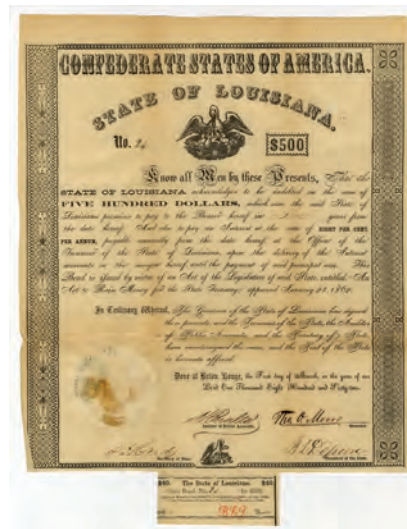 CONFEDERATE STATES OF AMERICA.
STATE OF LOUISIANA.
No. $500
Know all Men by these Presents, That the
STATE OF LOUISIANA acknowledges to be indebted in the sum of
FIVE HUNDRED DOLLARS, which sum the said State of
Louisiana promises to pay to the Bearer hereof in years from
the date hereof. And also to pay an Interest at the rate of EIGHT PER CENT.
PER ANNUM, payable annually from the date hereof, at the Office of the
Treasurer of the State of Louisiana, upon the delivery of the Interest
warrants in the margin hereof until the payment of said principal sum. This
Bond is issued by virtue of an Act of the Legislature of said State, entitled "An
Act to Raise Money for the State Treasury," approved January 23, 1862.
In Testimony Whereof, The Governor of the State of Louisiana has signed
these presents, and the Treasurer of the State, the Auditor
of Public Accounts and the Secretary of State
have countersigned the same, and the Seal of the State
is hereunto affixed.
Done at Baton Rouge, the First day of March, in the year of our
Lord One Thousand Eight Hundred and Sixty-two.
Auditor of Public Accounts. Tho. O. Moore Governor.
Secretary of State. Treasurer of the State.
$40. The State of Louisiana. $40.